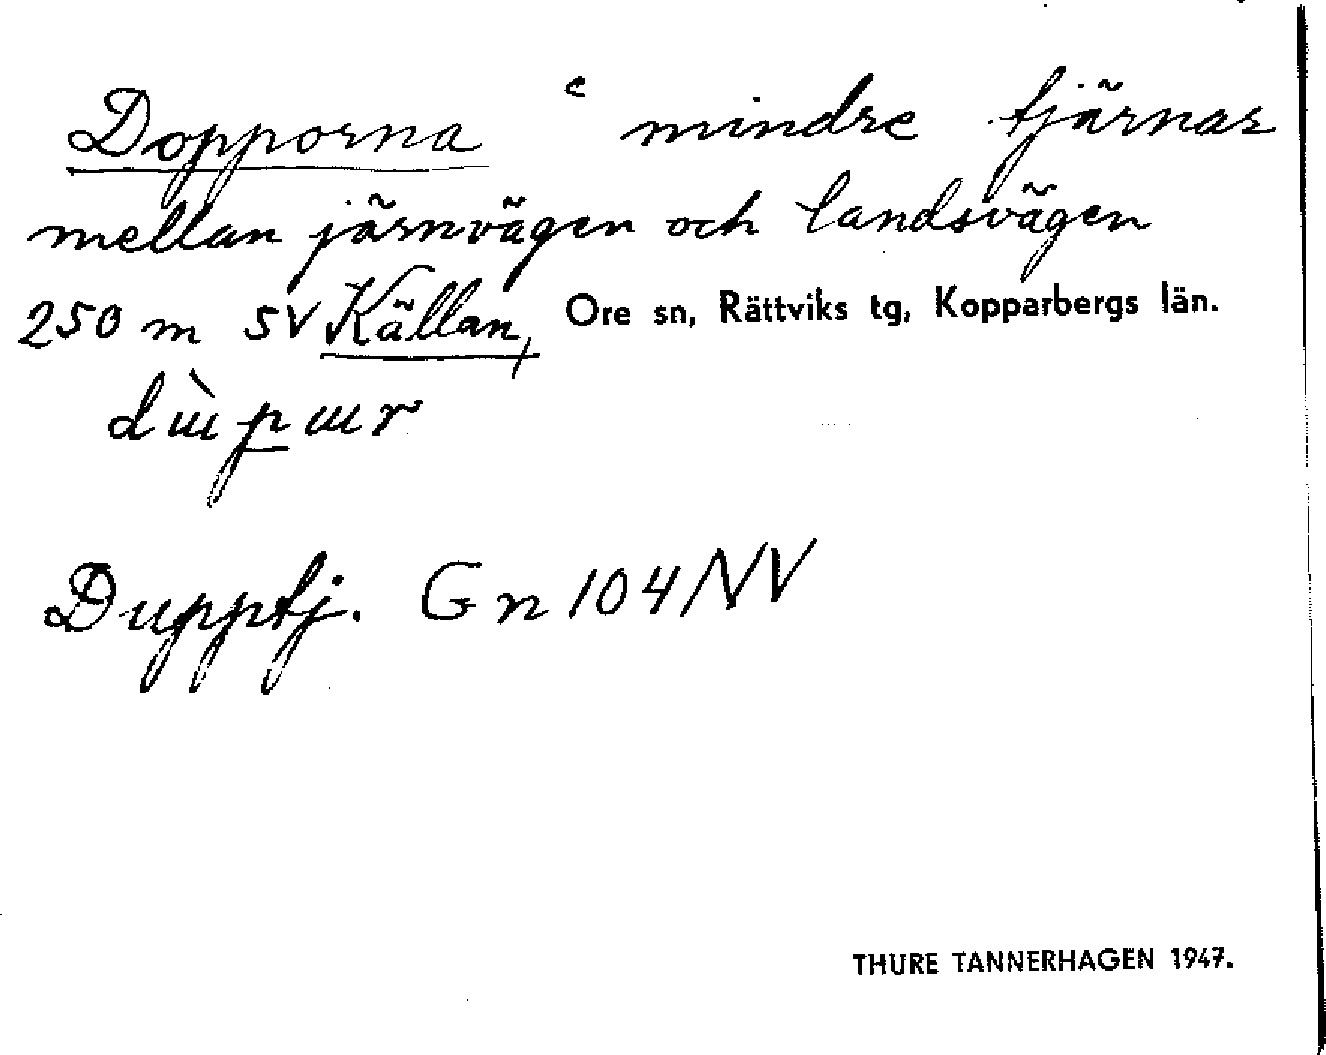 Dopporna c mindre tjärnar
mellan järnvägen och landsvägen
250 m SV Källan, Ore sn, Rättviks tg, Kopparbergs län.
dɯ̀p̲ɯr
Dupptj. Gn 104 NV
THURE TANNERHAGEN 1947.